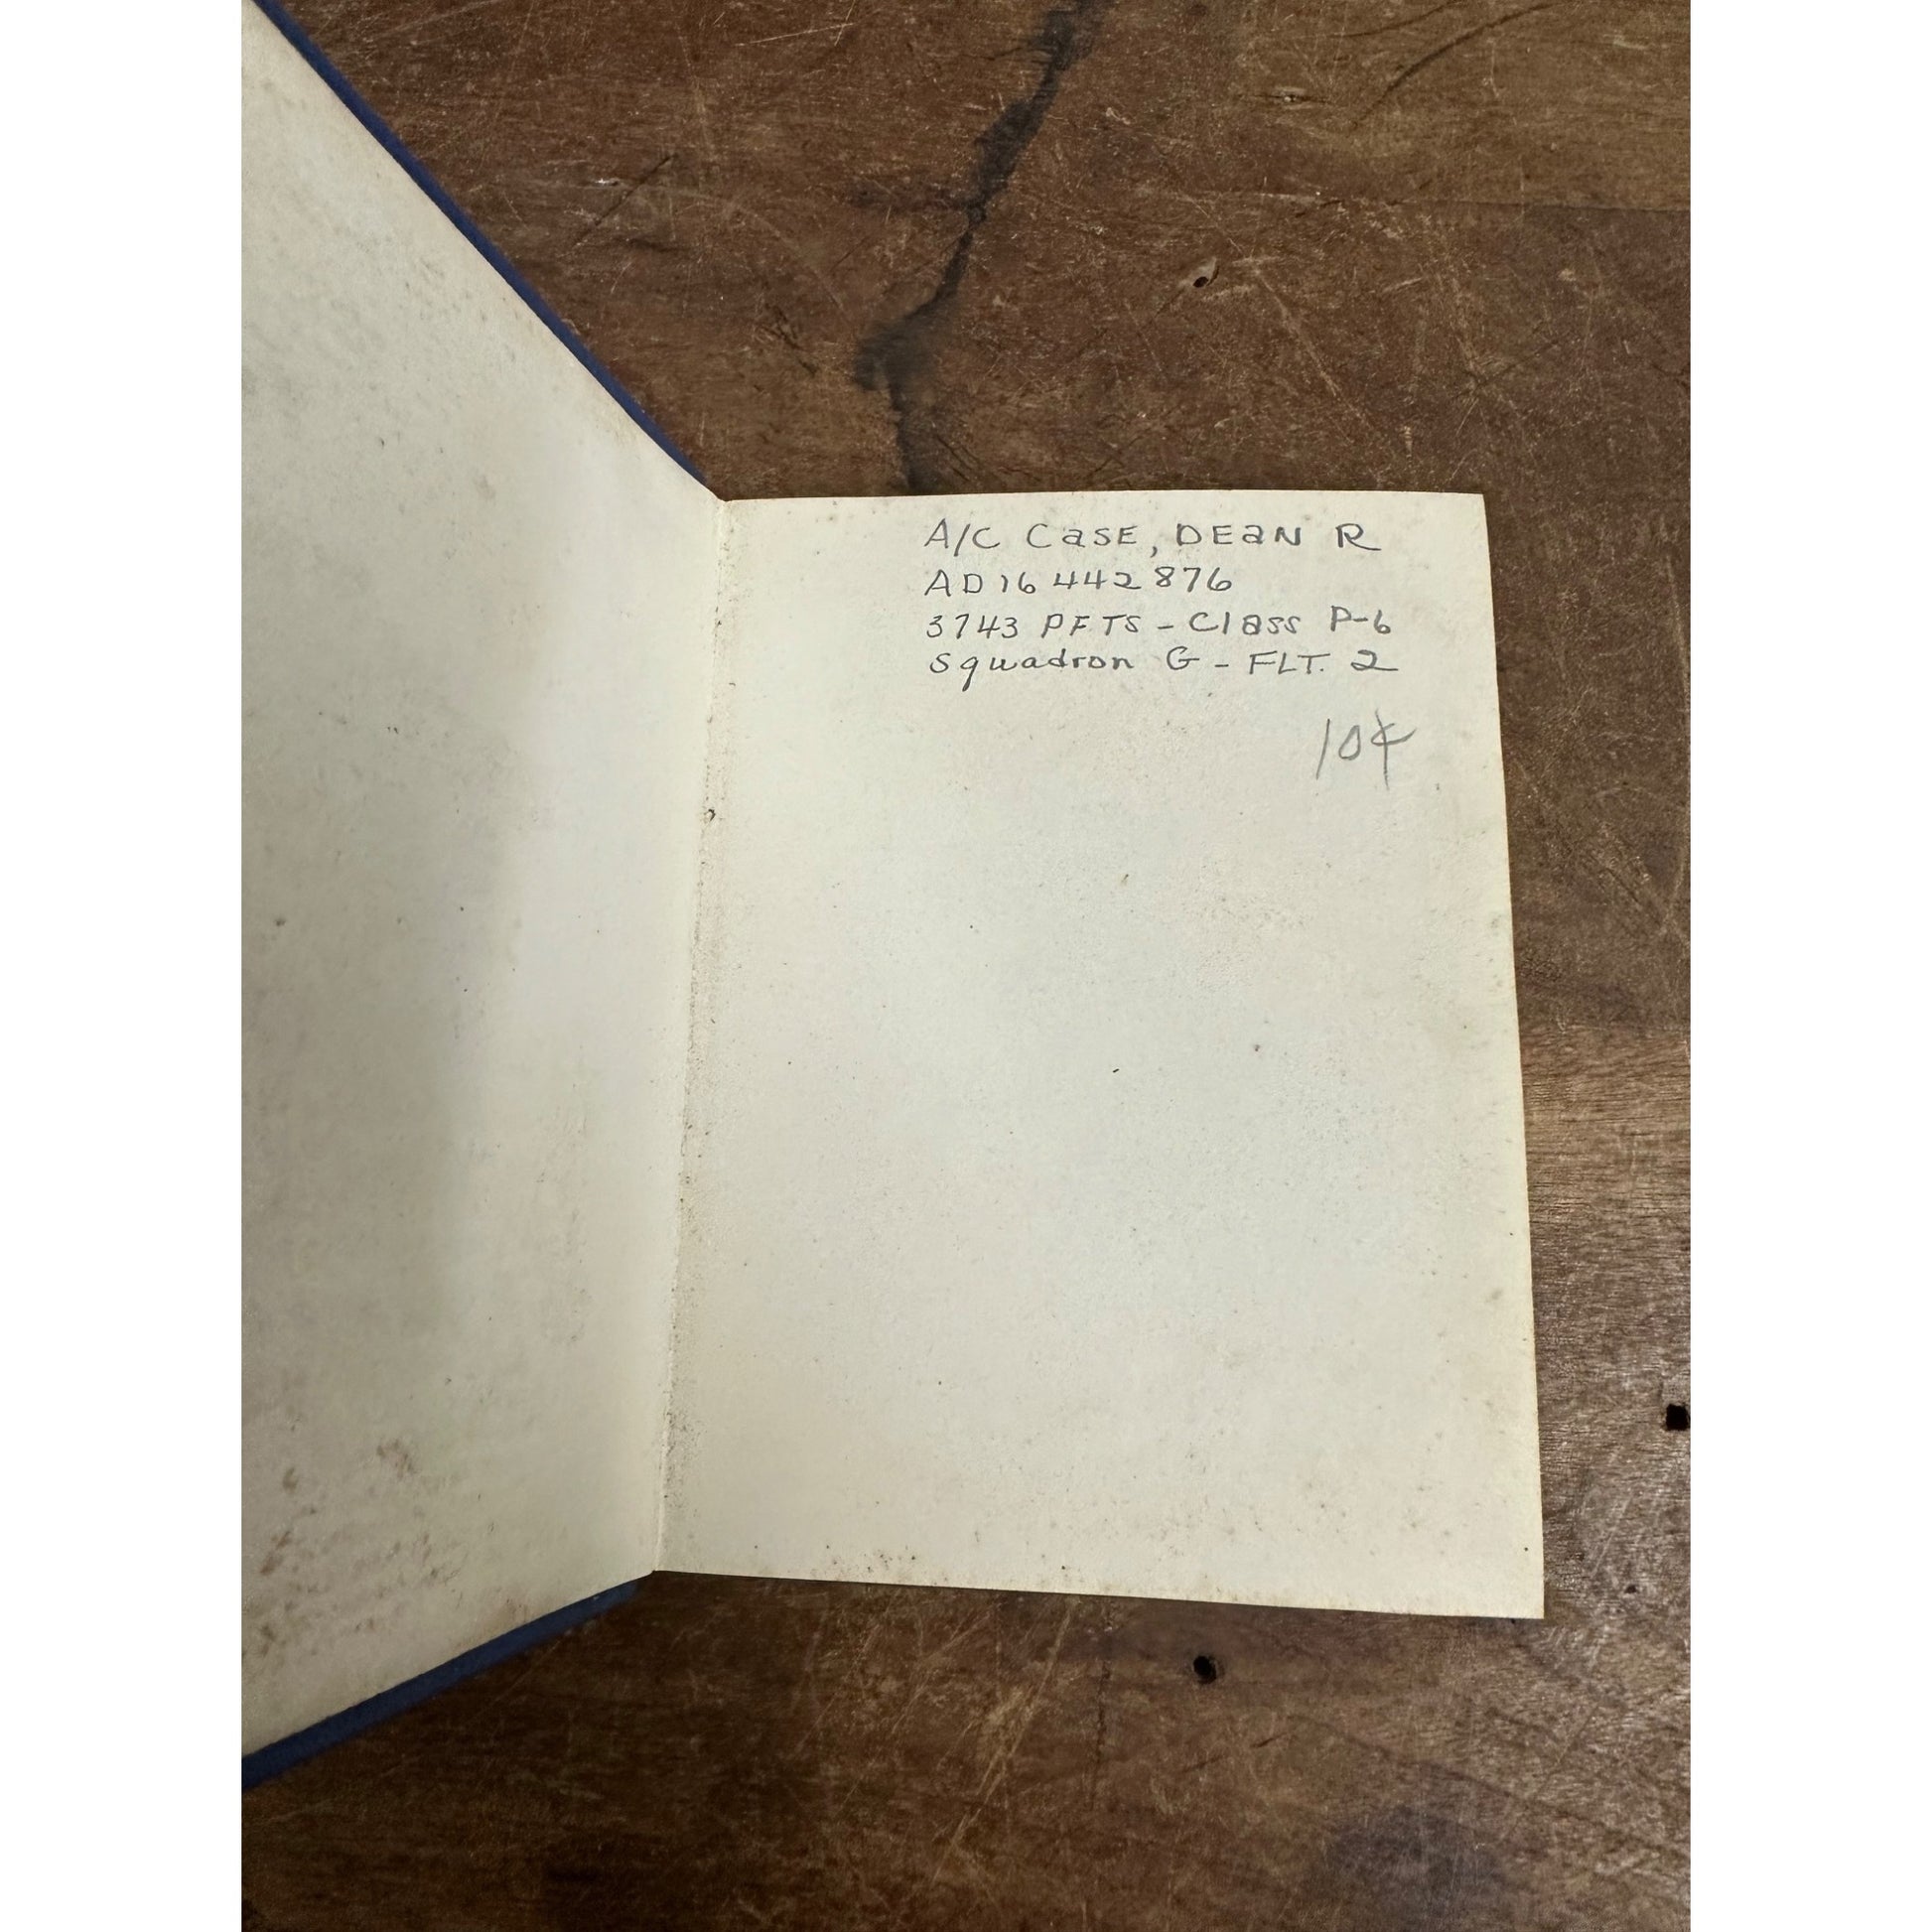 A/C Case, DEaN R
AD16 442 876
3743 PFTS - Class P-6
Squadron G - FLT. 2
10¢